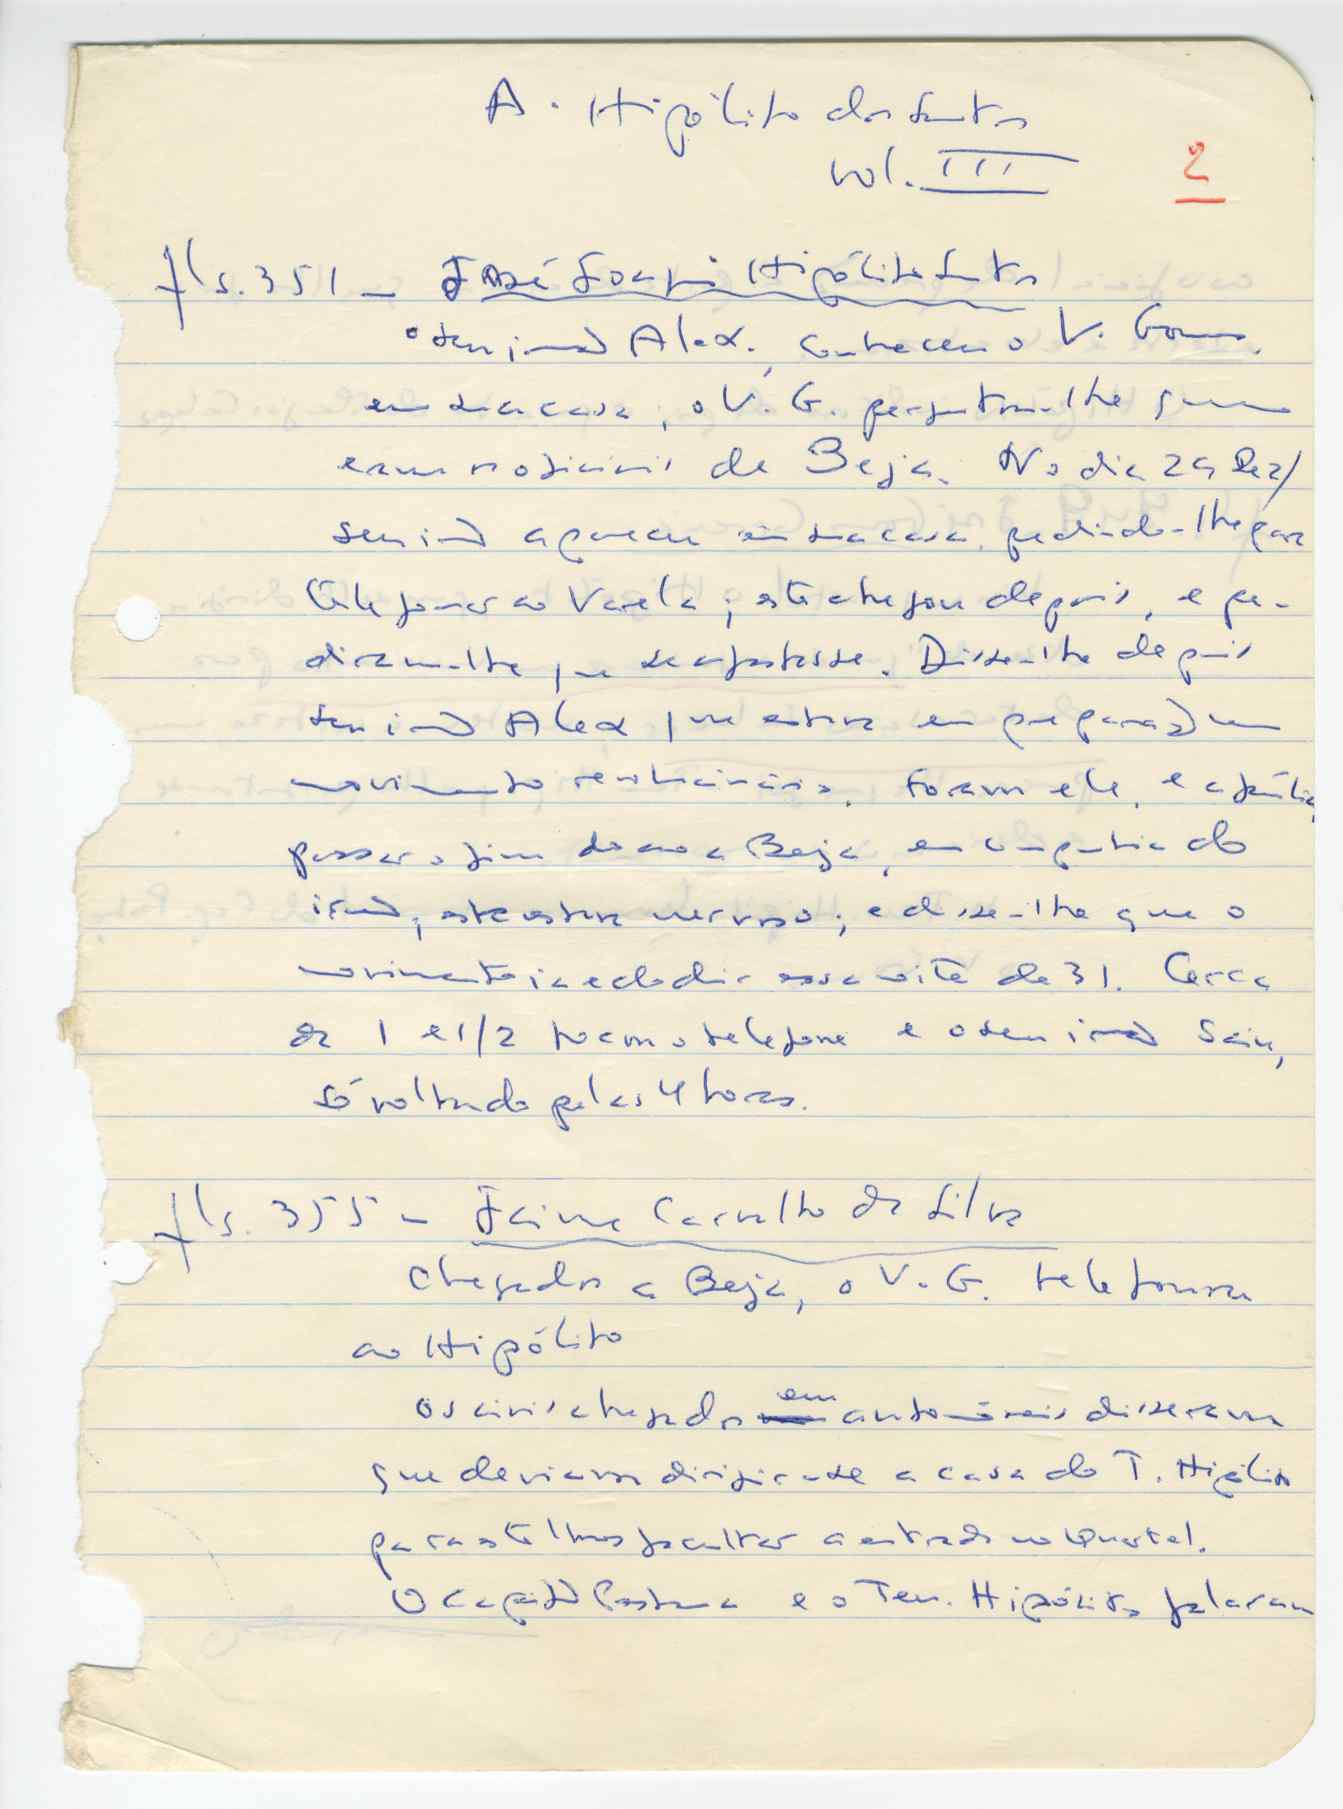 A. Hipólito dos Santos
vol. III
2
fls. 351 - José Joaqui Hipólito Santos
o seu irmão Alex. conheceu o V. Gomes
em sua casa; o V. G. perguntou-lhe que
eram noticiais de Beja. No dia 29 Dez/
seu irmão aparecu em sua casa, pedindo-lhe para
telefonar ao Varela; este chegou depois, e pe-
diram-lhe que se afastasse. Disse-lhe depois
seu irmão Alex que estava em preparação um
movimento revolucionário. Foram ele, e a família,
passar o fim do ano a Beja, em companhia do
irmão; este estava nervoso; e disse-lhe que o
movimento ia eclodir essa noite de 31. Cerca
da 1 e 1/2 tocou o telefone e o seu irmão saiu,
só voltando pelas 4 horas.
fls. 355 - Jaime Carvalho da Silva
Chegados a Beja, o V. G. telefonou
ao Hipólito
Os civis chegados em automóveis disseram
que deviam dirigir-se a casa do T. Hipólito
para este lhes facultar a entrada no Quartel.
O capitão Pestana e o Ten. Hipólito falaram